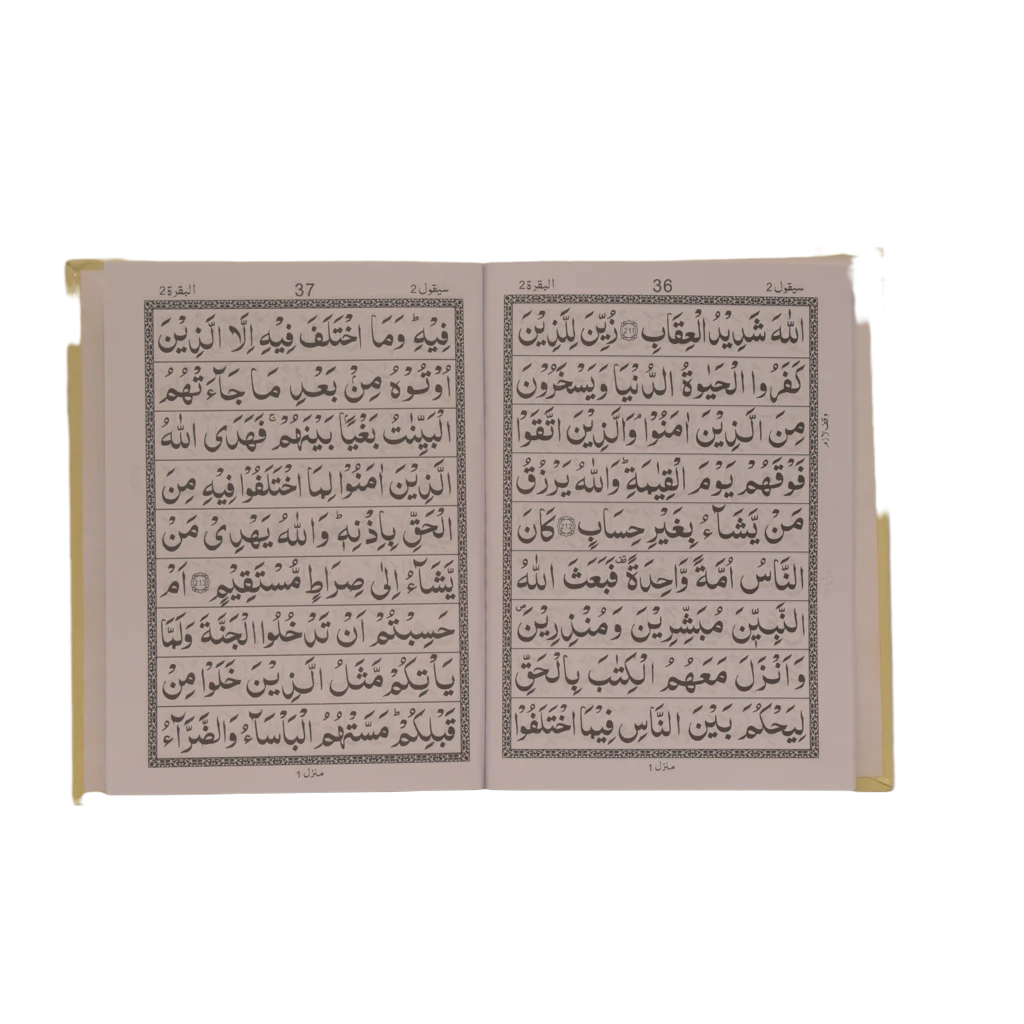 البقرة 2
36
سيقول 2
اللهَ شَدِيْدُ الْعِقَابِ 211 زُيِّنَ لِلَّذِيْنَ
كَفَرُوا الْحَيٰوةُ الدُّنْيَا وَيَسْخَرُوْنَ
مِنَ الَّذِيْنَ اٰمَنُوْا ۘ وَالَّذِيْنَ اتَّقَوْا
وقف لازم
فَوْقَهُمْ يَوْمَ الْقِيٰمَةِ ؕ وَاللهُ يَرْزُقُ
مَنْ يَّشَآءُ بِغَيْرِ حِسَابٍ 212 كَانَ
النَّاسُ اُمَّةً وَّاحِدَةً ۟قف فَبَعَثَ اللهُ
النَّبِيّٖنَ مُبَشِّرِيْنَ وَمُنْذِرِيْنَ ۪
وَاَنْزَلَ مَعَهُمُ الْكِتٰبَ بِالْحَقِّ
لِيَحْكُمَ بَيْنَ النَّاسِ فِيْمَا اخْتَلَفُوْا
منزل 1
البقرة 2
37
سيقول 2
فِيْهِ ؕ وَمَا اخْتَلَفَ فِيْهِ اِلَّا الَّذِيْنَ
اُوْتُوْهُ مِنْۢ بَعْدِ مَا جَآءَتْهُمُ
الْبَيِّنٰتُ بَغْيًۢا بَيْنَهُمْ ۚ فَهَدَى اللهُ
الَّذِيْنَ اٰمَنُوْا لِمَا اخْتَلَفُوْا فِيْهِ مِنَ
الْحَقِّ بِاِذْنِهٖ ؕ وَاللهُ يَهْدِيْ مَنْ
يَّشَآءُ اِلٰى صِرَاطٍ مُّسْتَقِيْمٍ 213 اَمْ
حَسِبْتُمْ اَنْ تَدْخُلُوا الْجَنَّةَ وَلَمَّا
يَاْتِكُمْ مَّثَلُ الَّذِيْنَ خَلَوْا مِنْ
قَبْلِكُمْ ؕ مَسَّتْهُمُ الْبَاْسَآءُ وَالضَّرَّآءُ
منزل 1